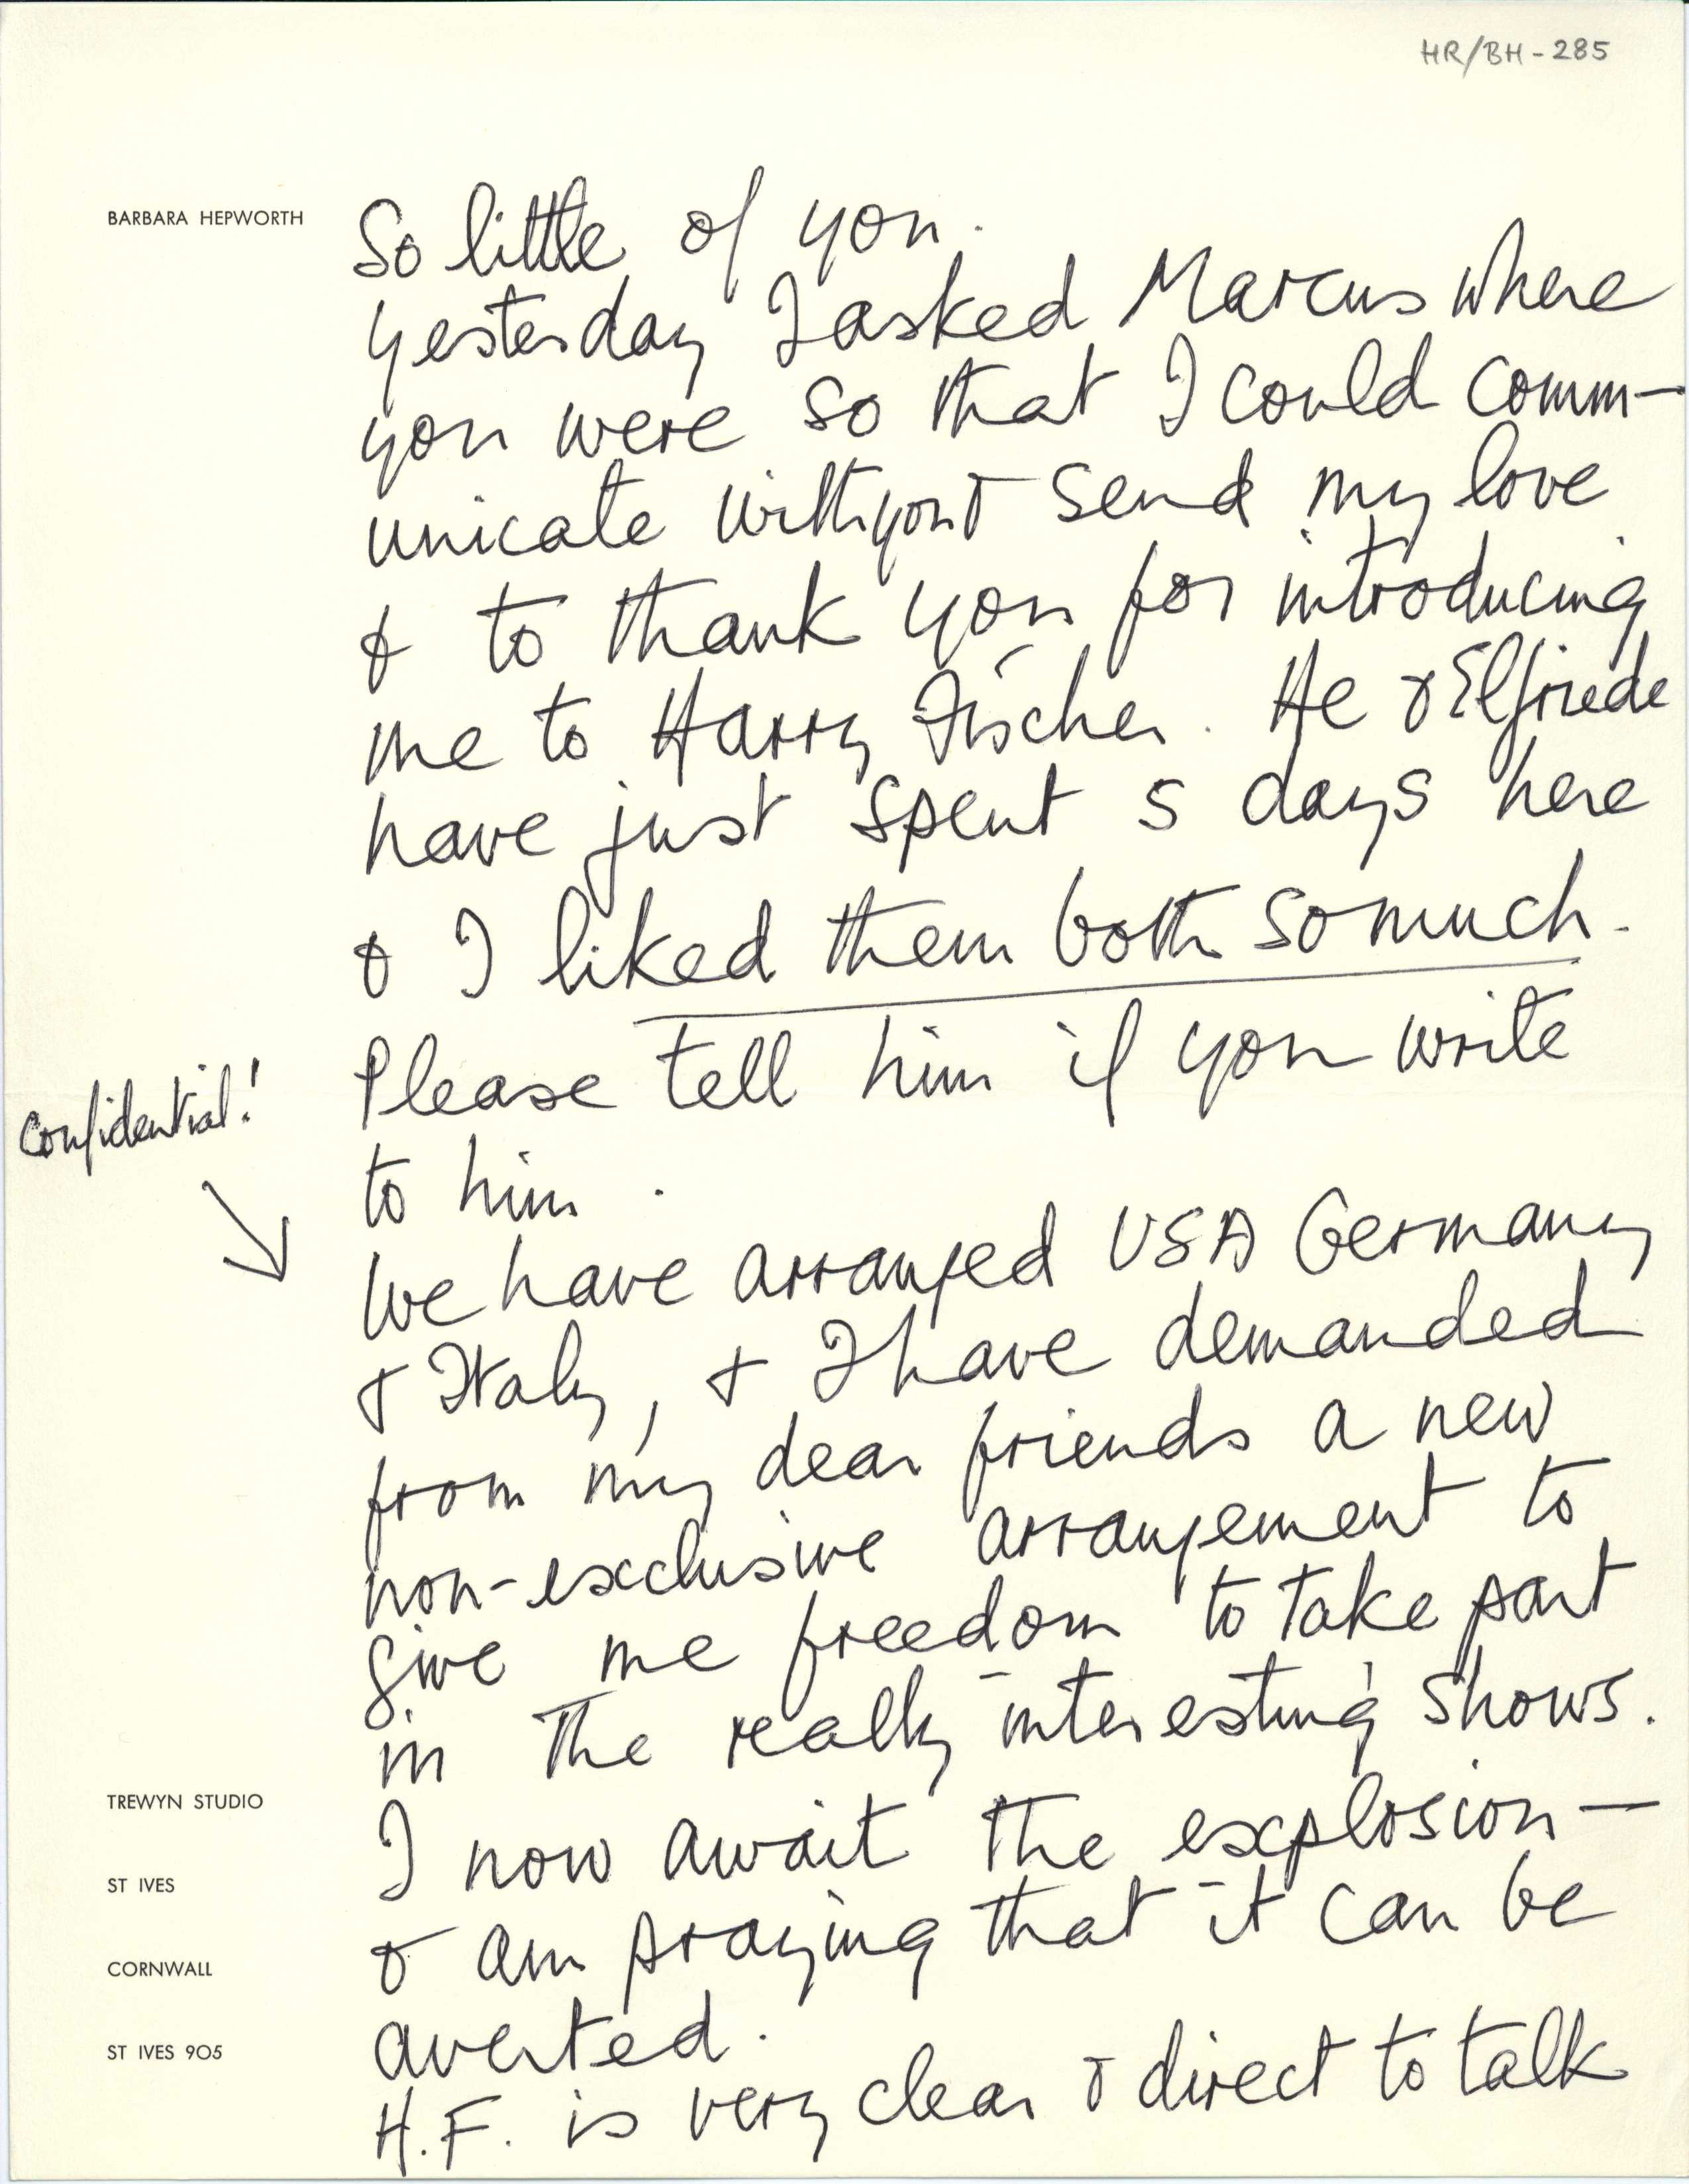 HR/BH - 285
BARBARA HEPWORTH
So little of you.
Yesterday I asked Marcus where
you were so that I could comm-
unicate with you & send my love
& to thank you for introducing
me to Harry Fischer. He & Elfriede
have just spent 5 days here
& I liked them both so much.
Please tell him if you write
to him.
Confidential!
We have arranged USA Germany
& Italy, & I have demanded
from my dear friends a new
non-exclusive arrangement to
give me freedom to take part
in the really interesting shows.
I now await the explosion —
& am praying that it can be
averted.
H.F. is very clear & direct to talk
TREWYN STUDIO
ST IVES
CORNWALL
ST IVES 905